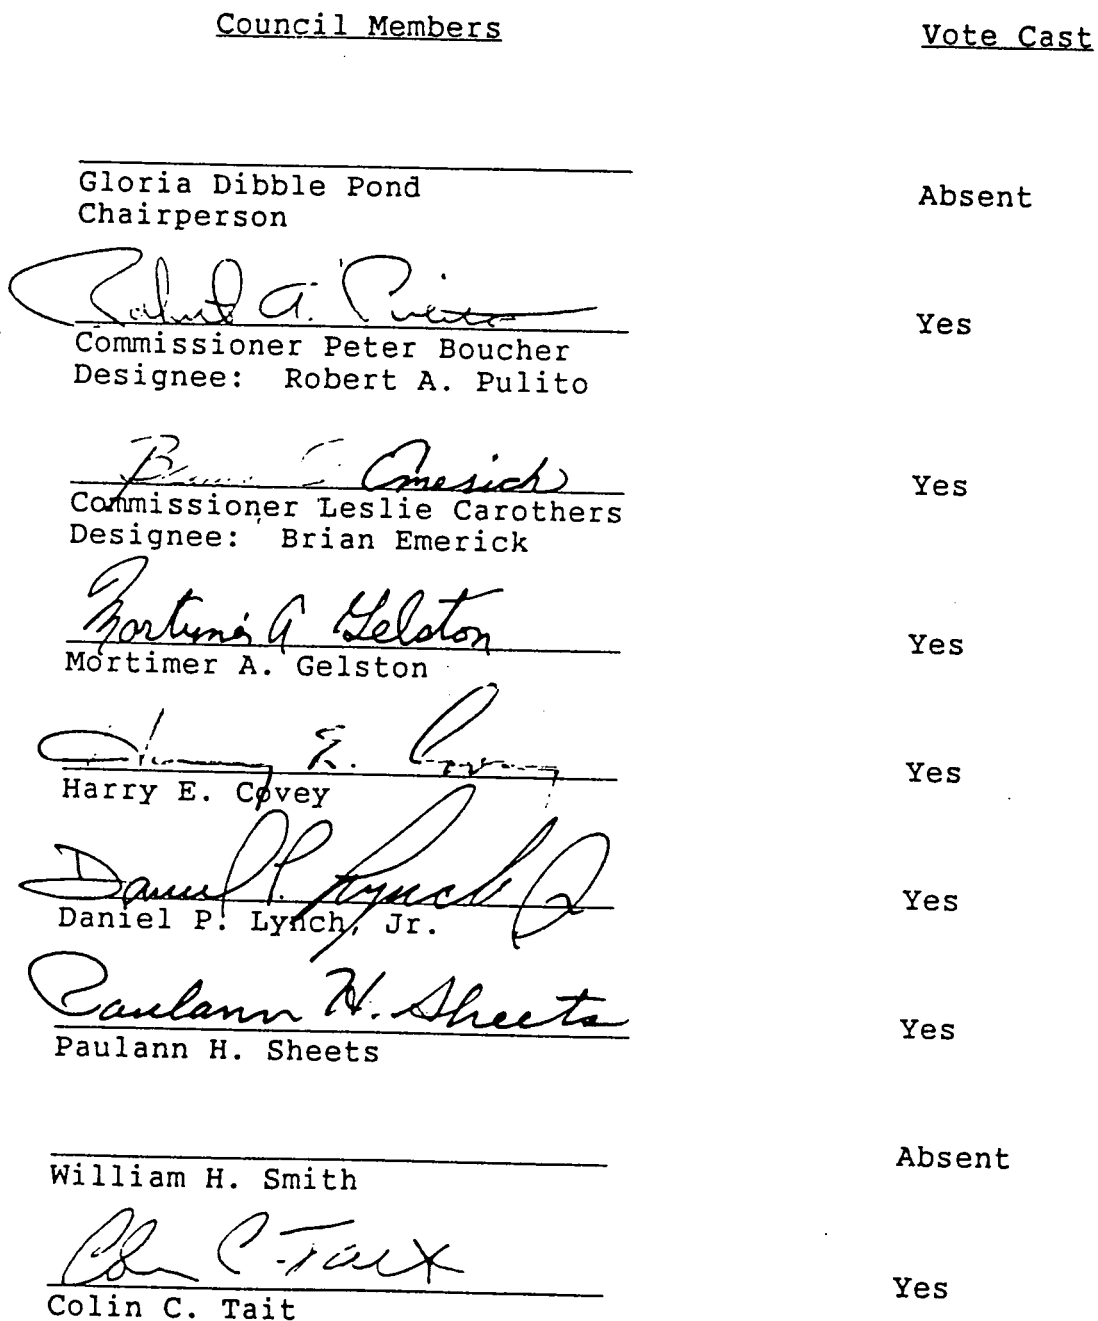 Council Members Vote Cast
Gloria Dibble Pond Absent
Chairperson
Robert A. Pulito
Yes
Commissioner Peter Boucher
Designee: Robert A. Pulito
Brian Emerick
Yes
Commissioner Leslie Carothers
Designee: Brian Emerick
Mortimer A Gelston
Yes
Mortimer A. Gelston
Harry E. Covey
Yes
Harry E. Covey
Daniel P. Lynch Jr
Yes
Daniel P. Lynch, Jr.
Paulann H. Sheets
Yes
Paulann H. Sheets
Absent
William H. Smith
Colin C. Tait
Yes
Colin C. Tait